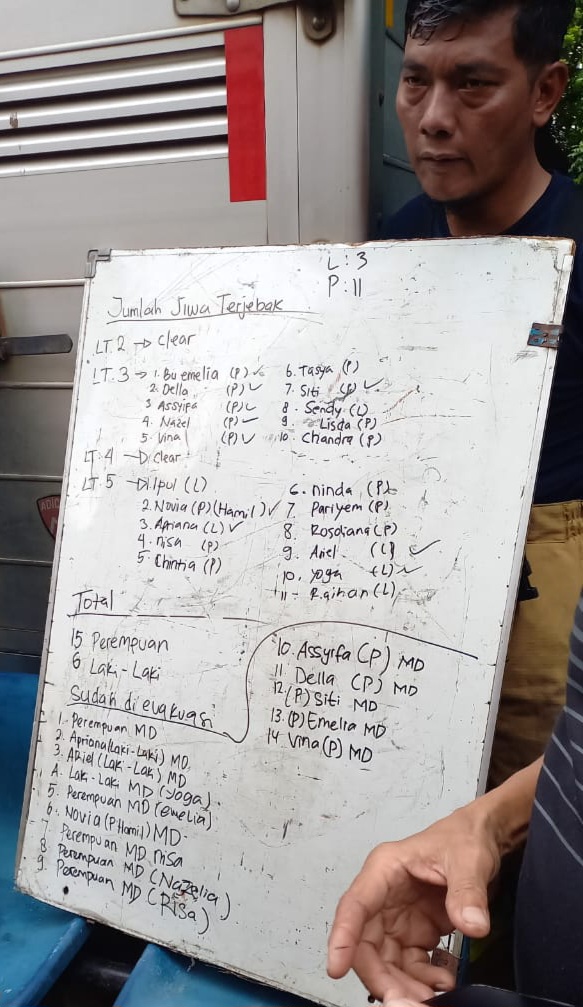 L : 3
P : 11
Jumlah Jiwa Terjebak
LT. 2 → Clear
LT. 3 → 1. Bu emelia (P) ✓
2. Della (P) ✓
3 Assyifa (P) ✓
4. Nazel (P) ✓
5. Vina (P) ✓
6. Tasya (P)
7. Siti (P) ✓
8. Sendy (L)
9. Lisda (P)
10. Chandra (P)
LT. 4 → Clear
LT. 5 → 1. Ipul (L)
2. Novia (P) (Hamil) ✓
3. Apriana (L) ✓
4. nisa (P)
5. Chintia (P)
6. ninda (P)
7. Pariyem (P)
8. Rosdiana (P)
9. Ariel (L) ✓
10. Yoga (L) ✓
11 - Raihan (L)
Total
15 Perempuan
6 Laki - Laki
Sudah di evakuasi
1. Perempuan MD
2. Apriana (Laki-Laki) MD.
3. ARiel (Laki-Laki) MD
4. Laki-Laki MD (Yoga)
5. Perempuan MD (emelia)
6. Novia (P Hamil) MD
7 Perempuan MD nisa
8 Perempuan MD (Nazelia)
9 Perempuan MD (Risa)
10. Assyifa (P) MD
11 Della (P) MD
12 (P) Siti MD
13. (P) Emelia MD
14 Vina (P) MD